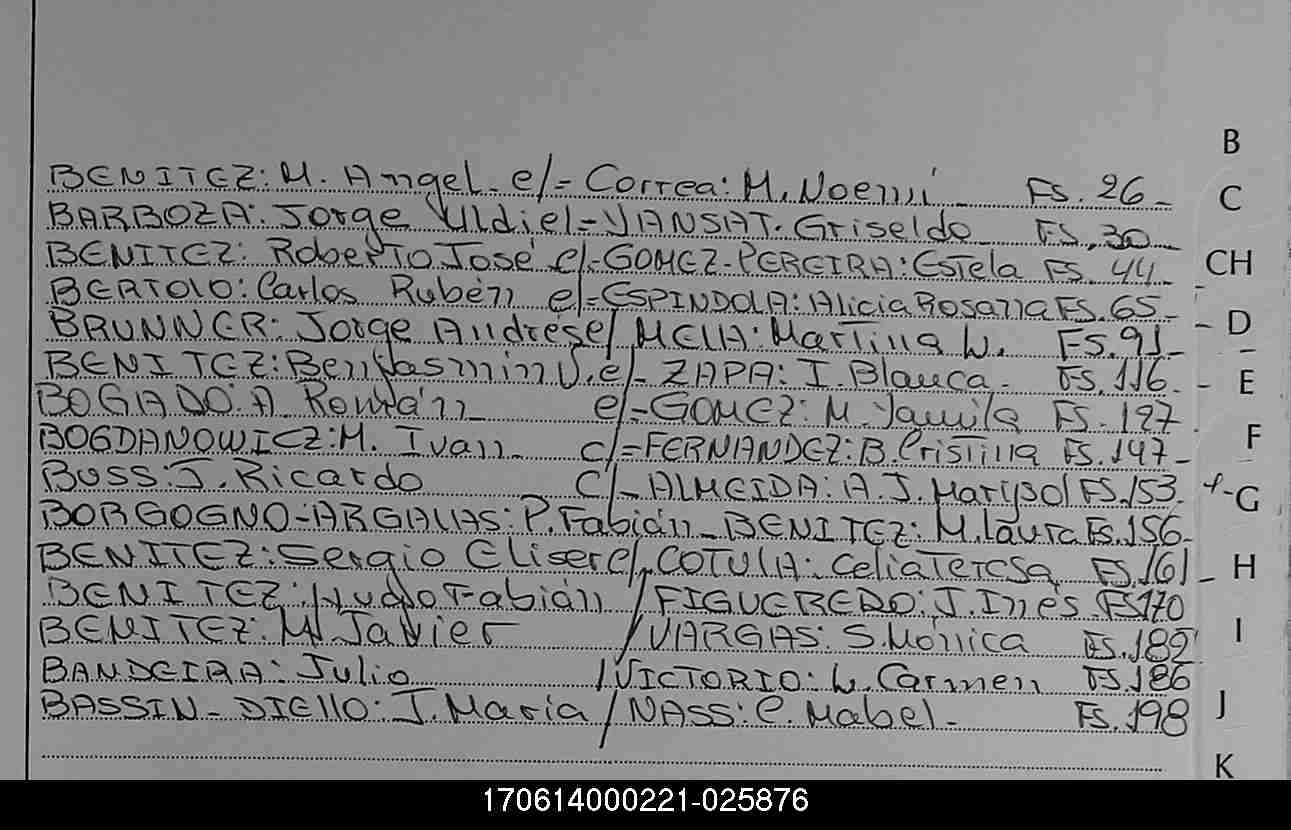 BENITEZ: M. Angel - c/- Correa: M. Noemí - FS. 26 -
BARBOZA: Jorge Uldiel - YANSAT. Griselda FS. 30 -
BENITEZ: Roberto José c/- GOMEZ-PEREIRA: Estela FS. 44 -
BERTOLO: Carlos Rubén c/- ESPINDOLA: Alicia Rosana FS. 65 -
BRUNNER: Jorge Andrés c/ MELLA: Martina L. FS. 91 -
BENITEZ: Benjasmin V. c/- ZAPA: I. Blanca - FS. 116 -
BOGADO: A. Román c/- GOMEZ: M. Yamila FS. 127
BOGDANOWICZ: M. Ivan c/- FERNANDEZ: B. Cristina FS. 147 -
BUSS: J. Ricardo c/- ALMEIDA: A. J. Marisol FS. 153
BORGOGNO-ARGALLAS: P. Fabián - BENITEZ: M. Laura FS. 156 -
BENITEZ: Sergio Eliser c/ COTULA: Celia Teresa FS. 161 -
BENITEZ: Hugo Fabián / FIGUEREDO: J. Inés FS 170
BENITEZ: M. Javier / VARGAS: S. Mónica FS. 182
BANDEIRA: Julio / VICTORIO: L. Carmen FS. 186
BASSIN - DIELLO: J. María / NASS: C. Mabel - FS. 198
B
C
CH
D
E
F
G
H
I
J
K
170614000221-025876